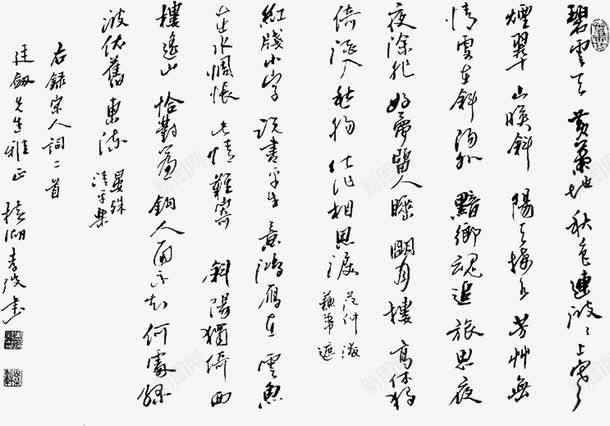 碧雲天黄葉地秋色連波波上寒
煙翠山映斜陽天接水芳草無
情更在斜陽外黯鄉魂追旅思夜
夜除非好夢留人睡明月樓高休獨
倚酒入愁腸化作相思淚
范仲淹
蘇幕遮
紅牋小字説盡平生意鴻雁在雲魚
在水惆悵此情難寄斜陽獨倚西
樓遙山恰對簾鉤人面不知何處緑
波依舊東流
晏殊
清平樂
右録宋人詞二首
廷劍先生雅正